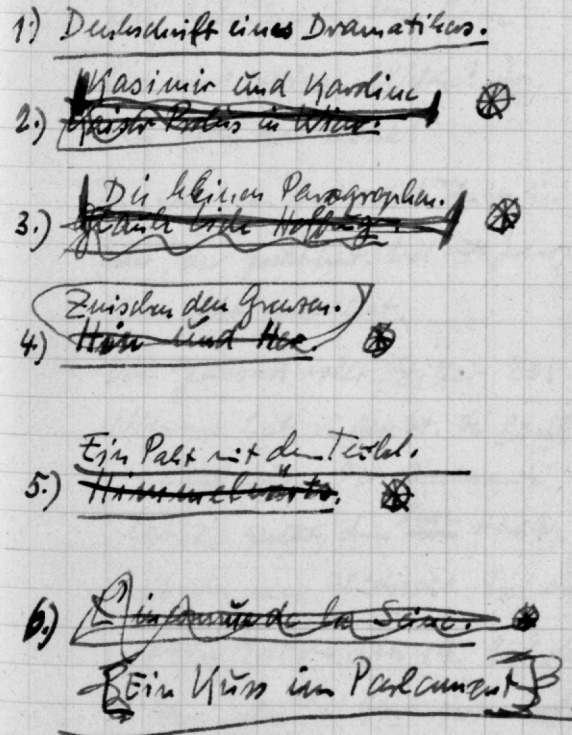 1.) Denkschrift eines Dramatikers.
Kasimir und Karoline
2.) Kaiser Probus in Wien.
Die kleinen Paragraphen.
3.) Glaube Liebe Hoffnung.
Zwischen den Grenzen.
4.) Hin und Her.
Ein Pakt mit dem Teufel.
5.) Himmelwärts.
6.) L'inconnue de la Seine.
Ein Kuss im Parlament